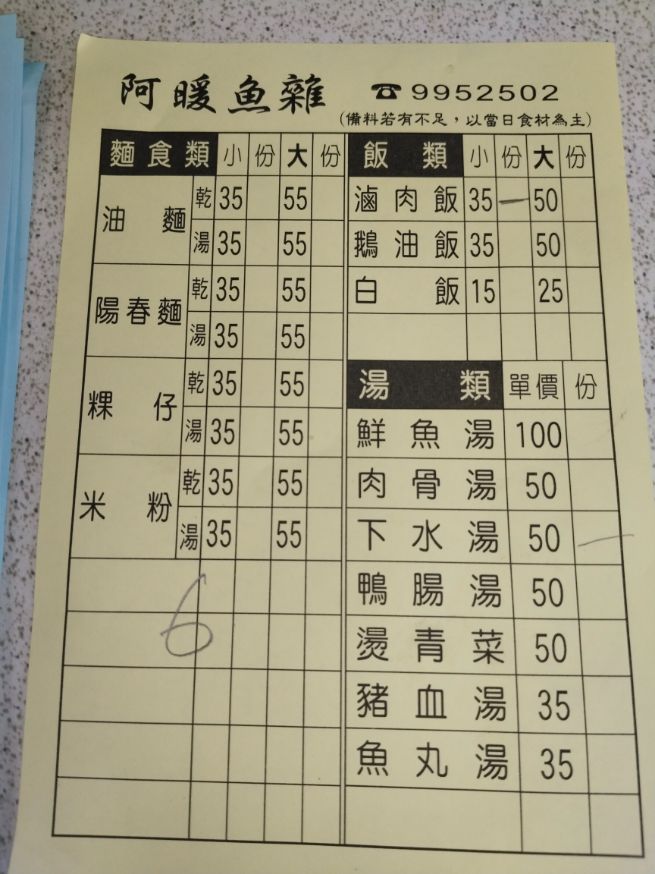 阿暖魚雜 ☎9952502
(備料若有不足，以當日食材為主)
麵食類 小 份 大 份
油麵 乾 35 55
湯 35 55
陽春麵 乾 35 55
湯 35 55
粿仔 乾 35 55
湯 35 55
米粉 乾 35 55
湯 35 55
6
飯類 小 份 大 份
滷肉飯 35 一 50
鵝油飯 35 50
白飯 15 25
湯類 單價 份
鮮魚湯 100
肉骨湯 50
下水湯 50 一
鴨腸湯 50
燙青菜 50
豬血湯 35
魚丸湯 35